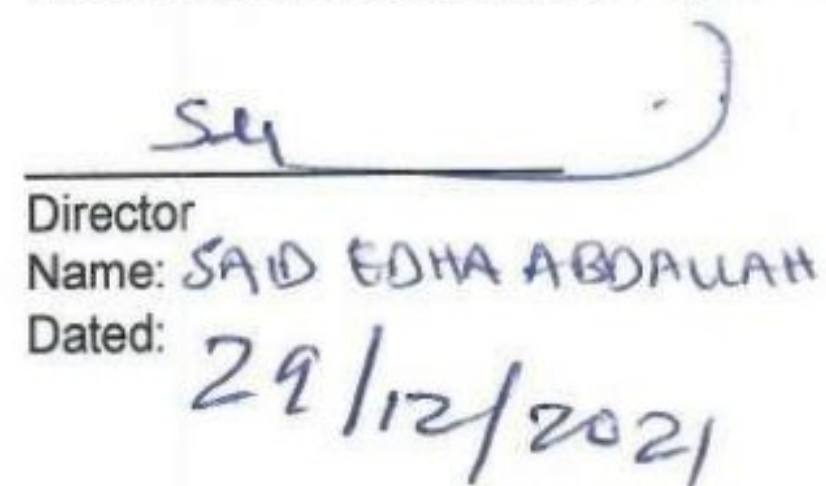 Director
Name: SAID EDHA ABDALLAH
Dated: 29/12/2021